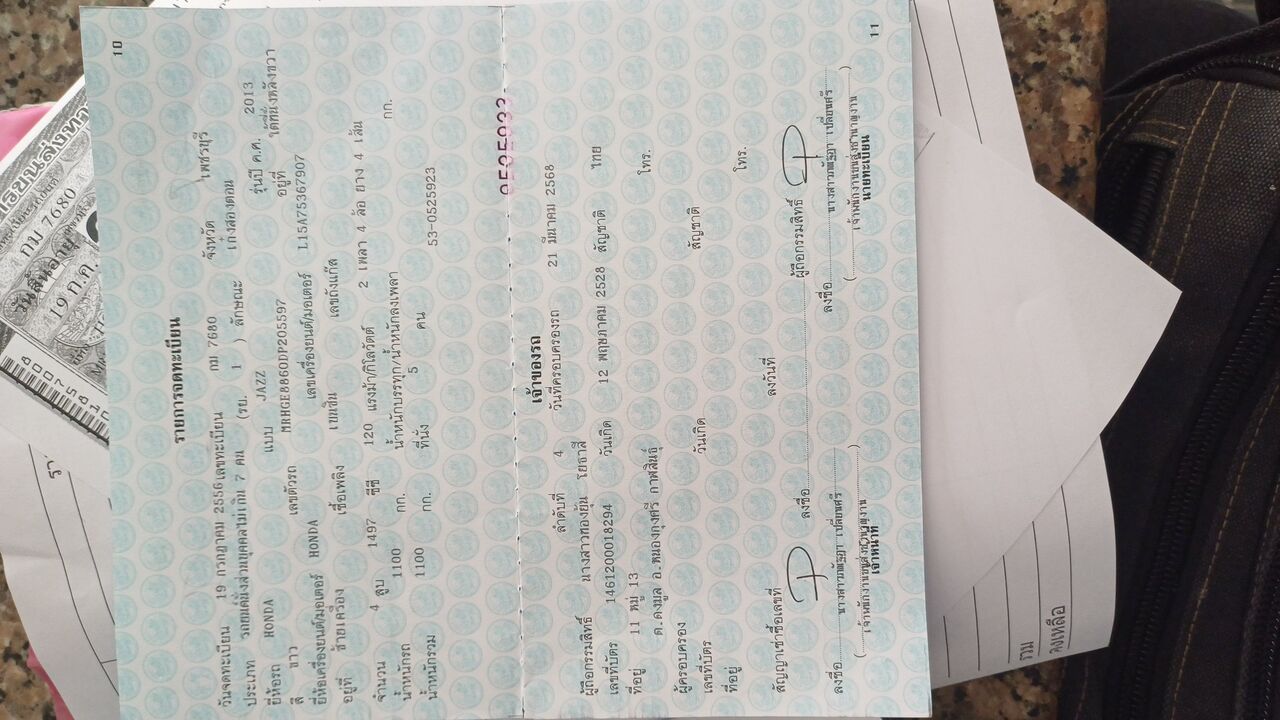 10
รายการจดทะเบียน
วันจดทะเบียน 19 กรกฎาคม 2556 เลขทะเบียน กม 7680 จังหวัด เพชรบุรี
ประเภท รถยนต์นั่งส่วนบุคคลไม่เกิน 7 คน (รย. 1 ) ลักษณะ เก๋งสองตอน
ยี่ห้อรถ HONDA แบบ JAZZ รุ่นปี ค.ศ. 2013
สี ขาว เลขตัวรถ MRHGE8860DP205597 อยู่ที่ ใต้ที่นั่งหลังขวา
ยี่ห้อเครื่องยนต์/มอเตอร์ HONDA เลขเครื่องยนต์/มอเตอร์ L15A75367907
อยู่ที่ ซ้ายเครื่อง เชื้อเพลิง เบนซิน เลขถังแก๊ส
จำนวน 4 สูบ 1497 ซีซี 120 แรงม้า/กิโลวัตต์ 2 เพลา 4 ล้อ ยาง 4 เส้น
น้ำหนักรถ 1100 กก. น้ำหนักบรรทุก/น้ำหนักลงเพลา กก.
น้ำหนักรวม 1100 กก. ที่นั่ง 5 คน
53-0525923
11
เจ้าของรถ
ลำดับที่ 4 วันที่ครอบครองรถ 21 มีนาคม 2568
ผู้ถือกรรมสิทธิ์ นางสาวทองยุ้น โยธาสี
เลขที่บัตร 1461200018294 วันเกิด 12 พฤษภาคม 2528 สัญชาติ ไทย
ที่อยู่ 11 หมู่ 13 โทร.
ต.ดงมูล อ.หนองกุงศรี กาฬสินธุ์
ผู้ครอบครอง
เลขที่บัตร วันเกิด สัญชาติ
ที่อยู่ โทร.
สัญญาเช่าซื้อเลขที่ ลงวันที่
ลงชื่อ ผู้ถือกรรมสิทธิ์
ลงชื่อ นางสาวพัธฎา เปลี่ยนศรี ลงชื่อ นางสาวพัธฎา เปลี่ยนศรี
(เจ้าพนักงานขนส่งชำนาญงาน) (เจ้าพนักงานขนส่งชำนาญงาน)
เจ้าหน้าที่ นายทะเบียน
วันสิ้นอายุ
กม 7680
19 ก.ค.
รวม
คงเหลือ